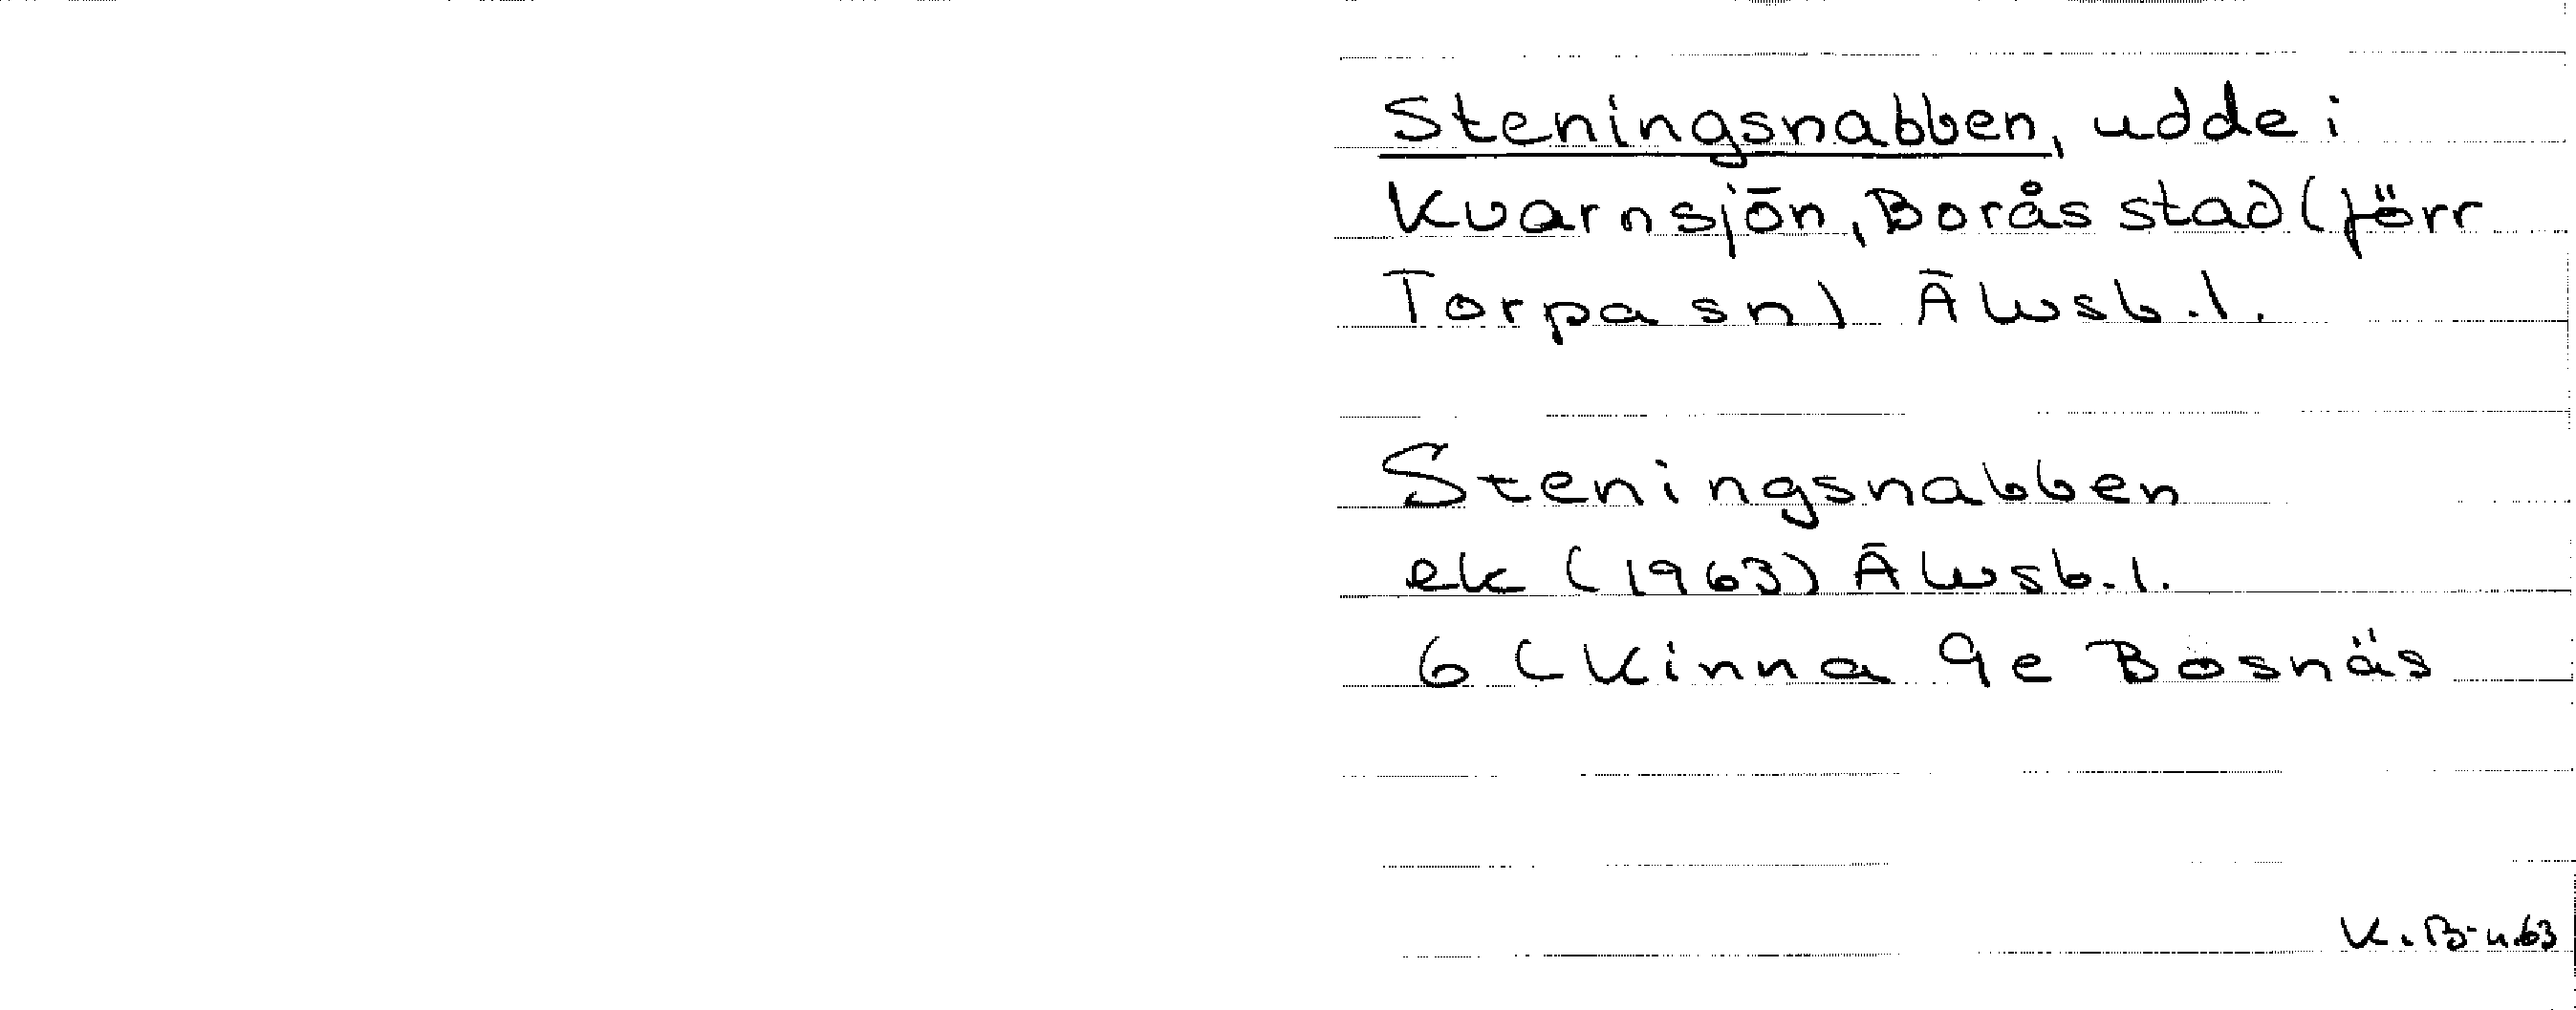 Steningsnabben, udde i
Kvarnsjön, Borås stad (förr
Torpa sn) Älvsb.l.
Steningsnabben
ek (1963) Älvsb.l.
6 C Kinna 9e Bosnäs
K.B-n.63